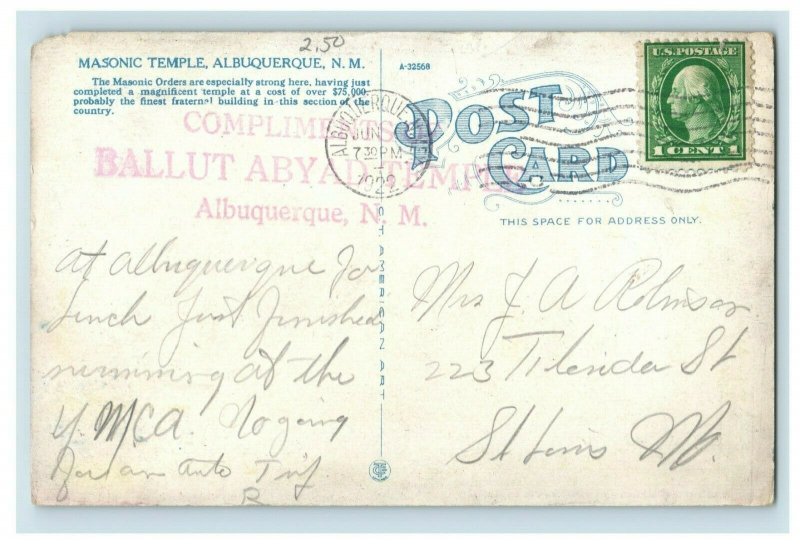 2.50
MASONIC TEMPLE, ALBUQUERQUE, N. M.
The Masonic Orders are especially strong here, having just
completed a magnificent temple at a cost of over $75,000,
probably the finest fraternal building in this section of the
country.
A-32568
POST
CARD
THIS SPACE FOR ADDRESS ONLY.
U.S. POSTAGE
1 CENT 1
ALBUQUERQUE
JUN
7 30 PM
1922
COMPLIMENTS
BALLUT ABYAD TEMPLE
Albuquerque, N. M.
At Albuquerque for
lunch Just finished
swimming at the
Y.M.C.A.
for an auto
AMERICAN ART
Mrs J. A Robinson
223 St
St Louis Mo.